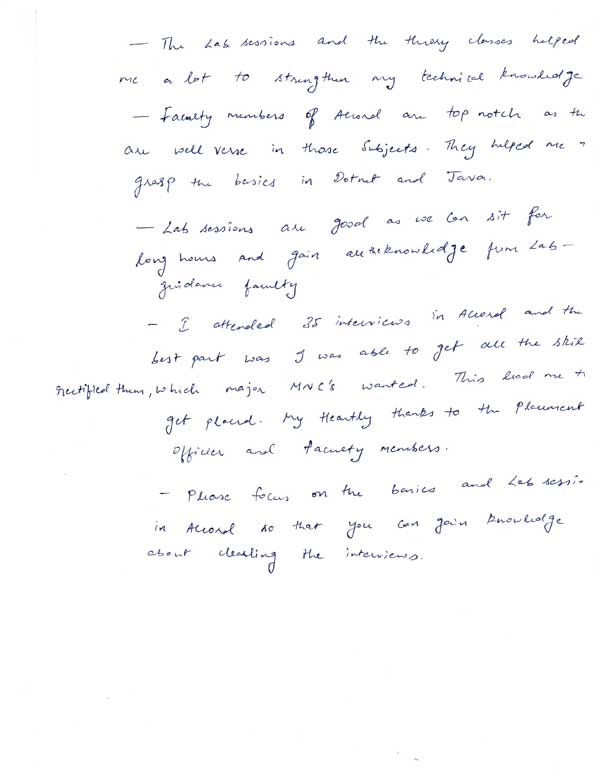 — The Lab sessions and the theory classes helped
me a lot to strengthen my technical knowledge
— Faculty members of Accord are top notch as th
are well verse in those Subjects. They helped me
grasp the basics in Dotnet and Java.
— Lab sessions are good as we can sit for
long hours and gain all the knowledge from Lab-
guidance faculty
- I attended 35 interviews in Accord and the
best part was I was able to get all the skil
rectified them, which major MNC's wanted. This lead me t
get placed. My Heartly thanks to the Placement
Officer and faculty members.
- Please focus on the basics and Lab sessio
in Accord so that you can gain knowledge
about clearing the interviews.